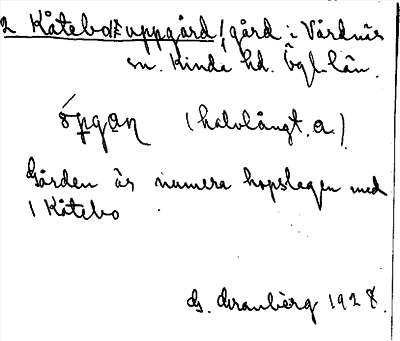 2 Kåtebo uppgård, gård i Vårdnäs
sn. Kinda hd. Ögl. län.
(halvlångt a.)
Gården är numera hopslagen med
1 Kåtebo
G. Granberg 1928.